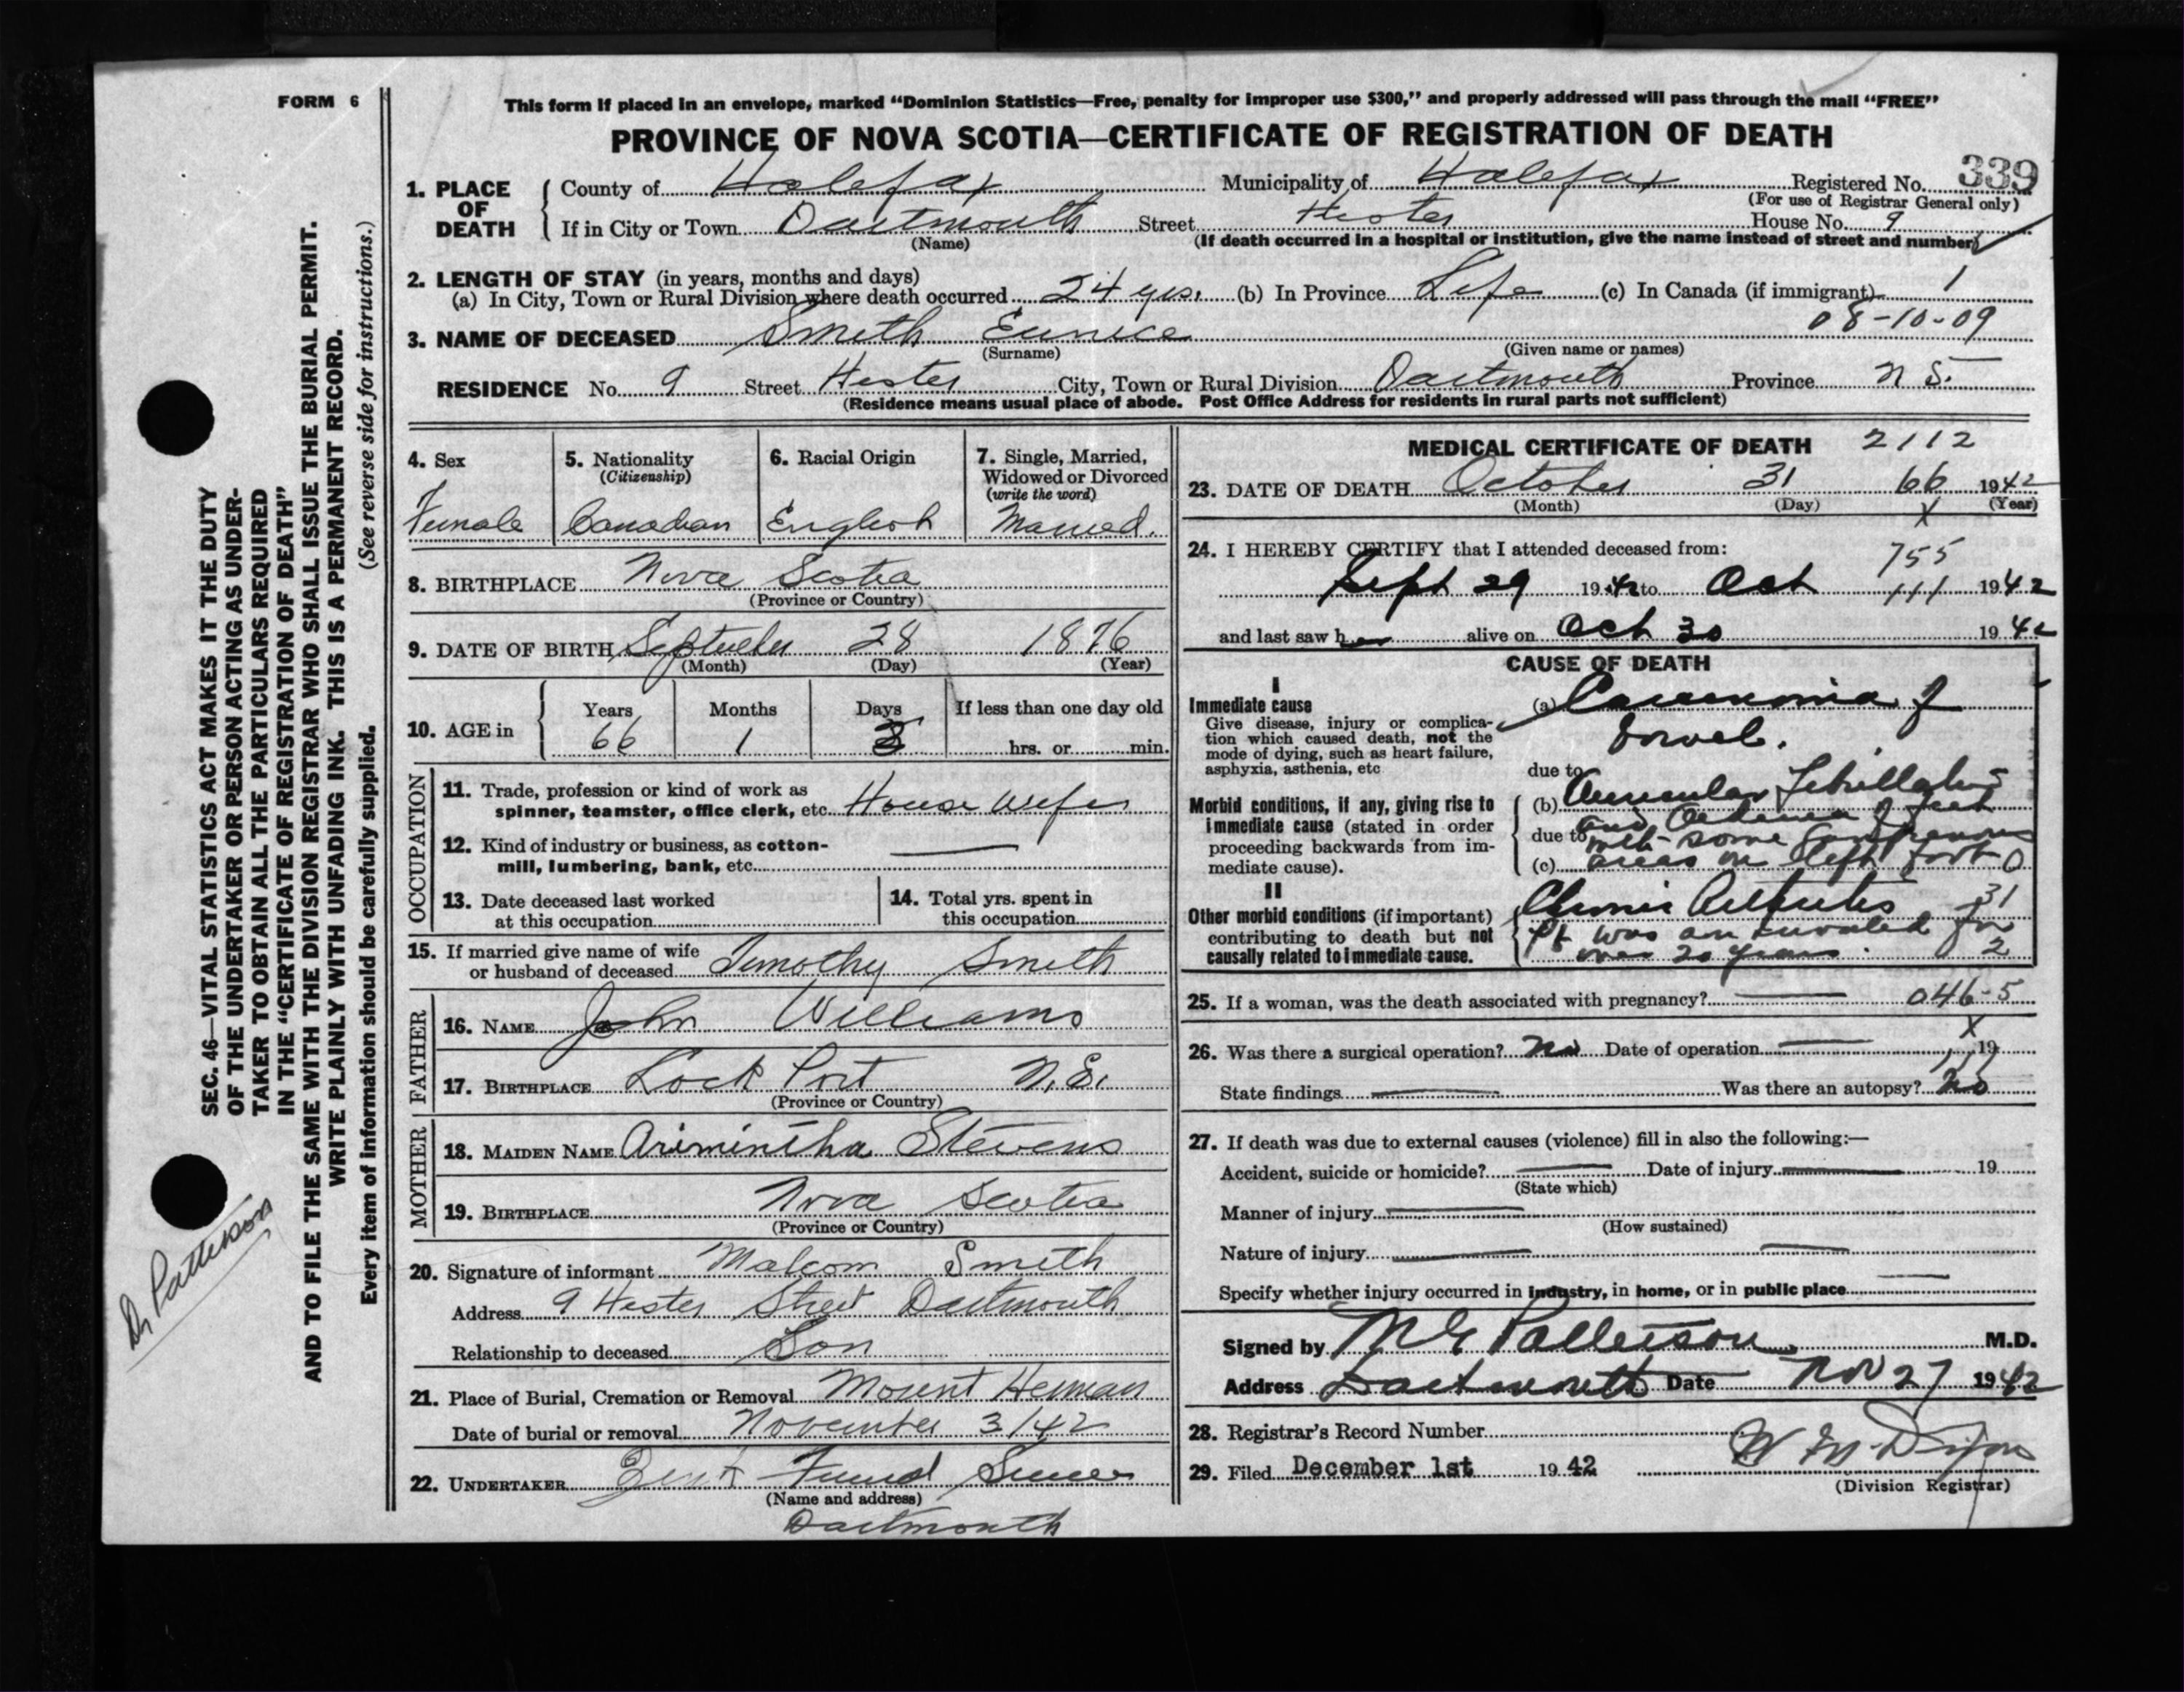 FORM 6
This form if placed in an envelope, marked “Dominion Statistics—Free, penalty for improper use $300,” and properly addressed will pass through the mail “FREE”
PROVINCE OF NOVA SCOTIA—CERTIFICATE OF REGISTRATION OF DEATH
339
1. PLACE OF DEATH County of Halifax Municipality of Halifax Registered No.
(For use of Registrar General only)
If in City or Town Dartmouth Street Hester House No. 9
(Name) (If death occurred in a hospital or institution, give the name instead of street and number)
2. LENGTH OF STAY (in years, months and days)
(a) In City, Town or Rural Division where death occurred 24 yrs. (b) In Province Life (c) In Canada (if immigrant) 1
08-10-09
3. NAME OF DECEASED Smith Eunice
(Surname) (Given name or names)
RESIDENCE No. 9 Street Hester City, Town or Rural Division Dartmouth Province N S.
(Residence means usual place of abode. Post Office Address for residents in rural parts not sufficient)
4. Sex 5. Nationality 6. Racial Origin 7. Single, Married,
(Citizenship) Widowed or Divorced
(write the word)
Female Canadian English Married.
8. BIRTHPLACE Nova Scotia
(Province or Country)
9. DATE OF BIRTH September 28 1876
(Month) (Day) (Year)
10. AGE in Years Months Days If less than one day old
66 1 3 hrs. or min.
OCCUPATION
11. Trade, profession or kind of work as
spinner, teamster, office clerk, etc. House Wife
12. Kind of industry or business, as cotton-
mill, lumbering, bank, etc.
13. Date deceased last worked 14. Total yrs. spent in
at this occupation this occupation
15. If married give name of wife
or husband of deceased Timothy Smith
FATHER
16. NAME John Williams
17. BIRTHPLACE Lock Port N.S.
(Province or Country)
MOTHER
18. MAIDEN NAME Arimintha Stevens
19. BIRTHPLACE Nova Scotia
(Province or Country)
20. Signature of informant Malcom Smith
Address 9 Hester Street Dartmouth
Relationship to deceased Son
21. Place of Burial, Cremation or Removal Mount Herman
Date of burial or removal November 3/42
22. UNDERTAKER
(Name and address)
Dartmouth
MEDICAL CERTIFICATE OF DEATH 2112
23. DATE OF DEATH October 31 66 1942
(Month) (Day) X (Year)
24. I HEREBY CERTIFY that I attended deceased from:
755
Sept 29 1942 to Oct 111 1942
and last saw her alive on Oct 30 1942
CAUSE OF DEATH
I
Immediate cause (a)
Give disease, injury or complica-
tion which caused death, not the
mode of dying, such as heart failure,
asphyxia, asthenia, etc
due to
Morbid conditions, if any, giving rise to (b) Auricular Fibrillation
immediate cause (stated in order
proceeding backwards from im- due to with some gangrenous
mediate cause). (c) areas on left foot 0
II
Other morbid conditions (if important) Chronic Arthritis 31
contributing to death but not Pt was an invalid for
causally related to immediate cause. over 20 years. 2
25. If a woman, was the death associated with pregnancy? 046-5
X
26. Was there a surgical operation? No Date of operation 19
State findings Was there an autopsy? No
27. If death was due to external causes (violence) fill in also the following:—
Accident, suicide or homicide? Date of injury 19
(State which)
Manner of injury
(How sustained)
Nature of injury
Specify whether injury occurred in industry, in home, or in public place
Signed by M G Patterson M.D.
Address Dartmouth Date Nov 27 1942
28. Registrar's Record Number
29. Filed December 1st 1942
(Division Registrar)
SEC. 46—VITAL STATISTICS ACT MAKES IT THE DUTY
OF THE UNDERTAKER OR PERSON ACTING AS UNDER-
TAKER TO OBTAIN ALL THE PARTICULARS REQUIRED
IN THE “CERTIFICATE OF REGISTRATION OF DEATH”
AND TO FILE THE SAME WITH THE DIVISION REGISTRAR WHO SHALL ISSUE THE BURIAL PERMIT.
WRITE PLAINLY WITH UNFADING INK. THIS IS A PERMANENT RECORD.
Every item of information should be carefully supplied. (See reverse side for instructions.)
Dr Patterson